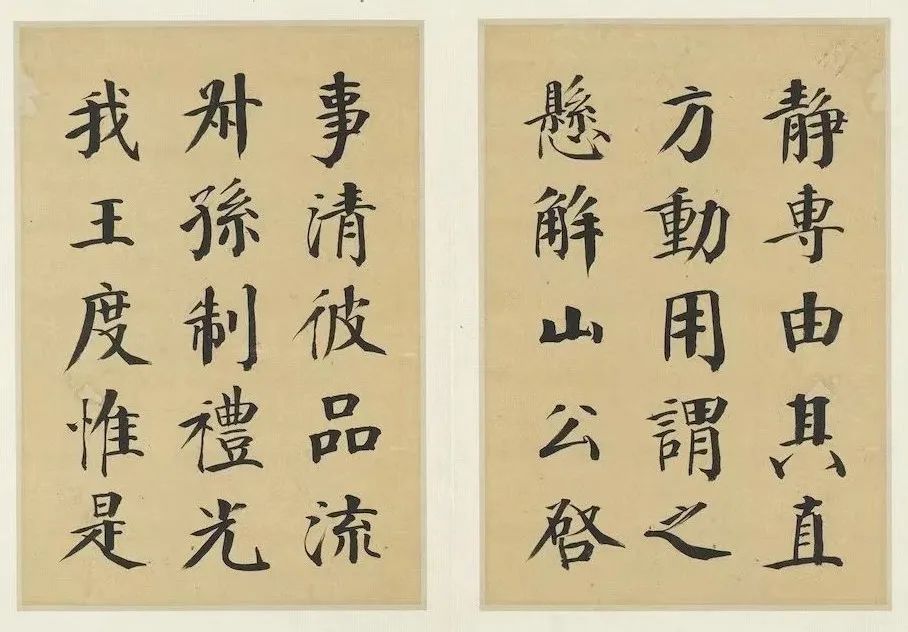 静専由其直
方動用謂之
懸解山公啓
事清彼品流
叔孫制禮光
我王度惟是